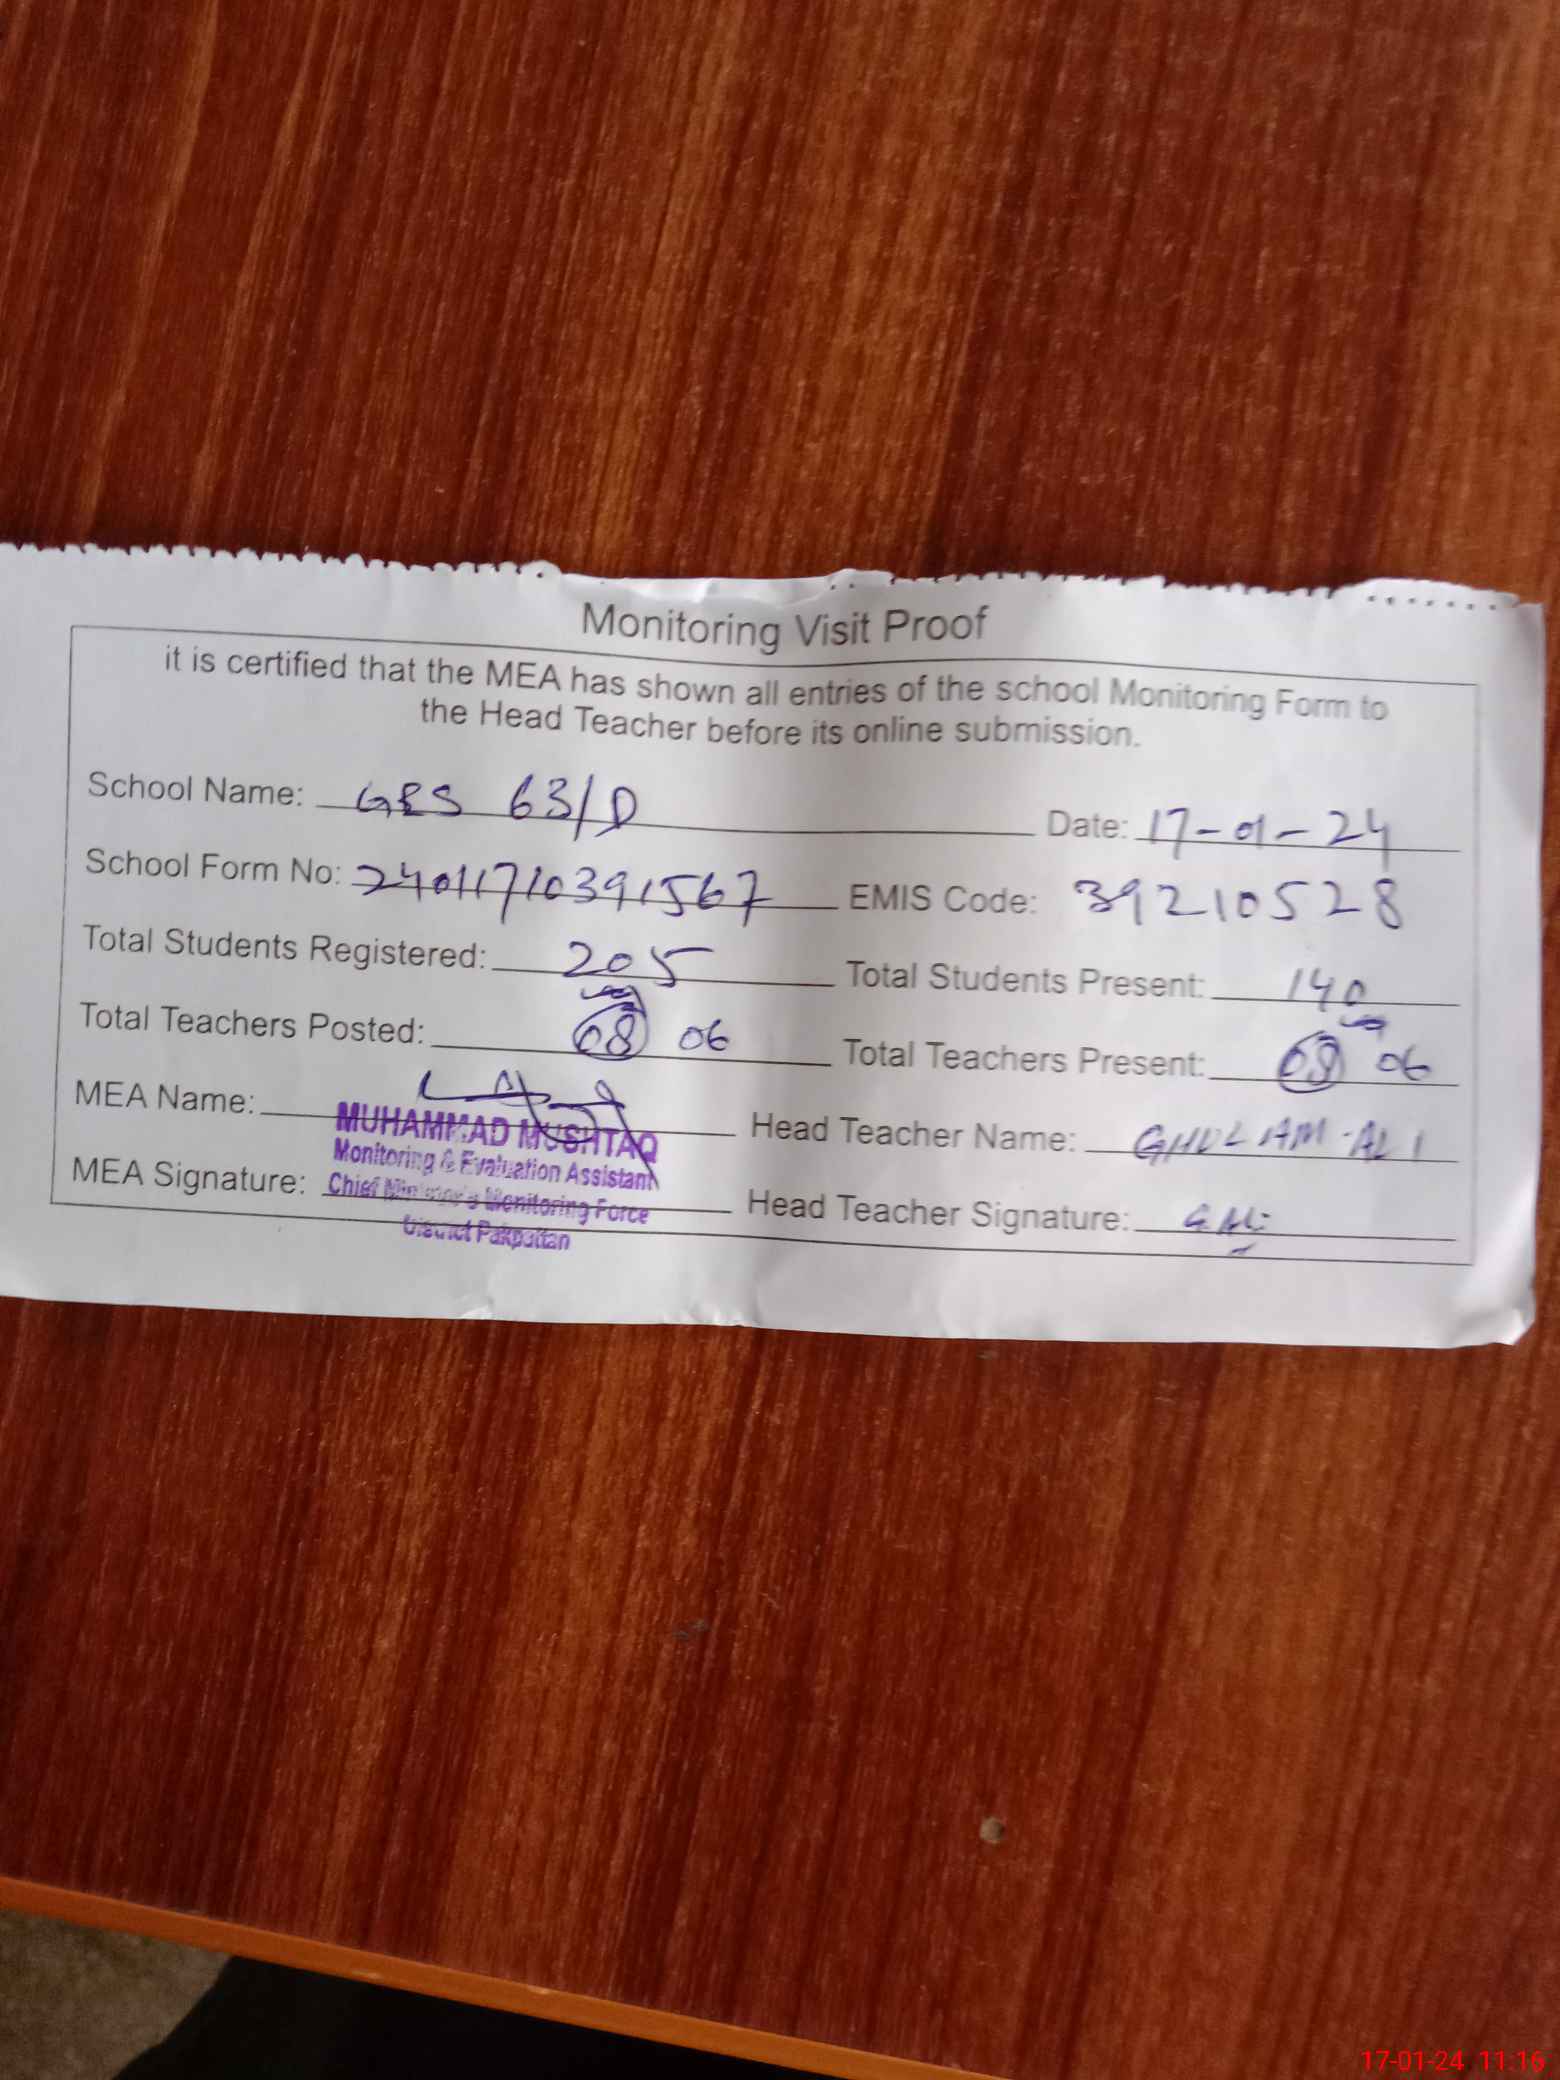 Monitoring Visit Proof
it is certified that the MEA has shown all entries of the school Monitoring Form to
the Head Teacher before its online submission.
School Name: GES 63/D Date: 17-01-24
School Form No: 24011710391567 EMIS Code: 39210528
Total Students Registered: 205 Total Students Present: 140
Total Teachers Posted: 08 06 Total Teachers Present: 08 06
MEA Name: Head Teacher Name: GHULAM-ALI
MUHAMMAD MUSHTAQ
Monitoring & Evaluation Assistant
MEA Signature: Head Teacher Signature: G.Ali
Chief Minister's Monitoring Force
District Pakpattan
17-01-24 11:16